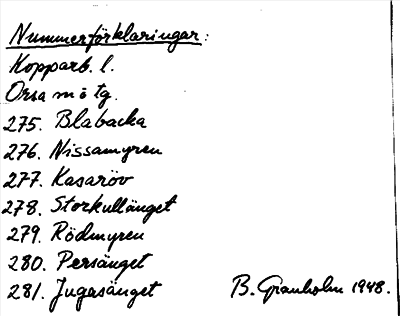 Nummerförklaringar:
Kopparb. l.
Orsa m o tg.
275. Blabacka
276. Nissamyren
277. Kasaröv
278. Storkullänget
279. Rödmyren
280. Persänget
281. Jugasänget
B. Granholm 1948.